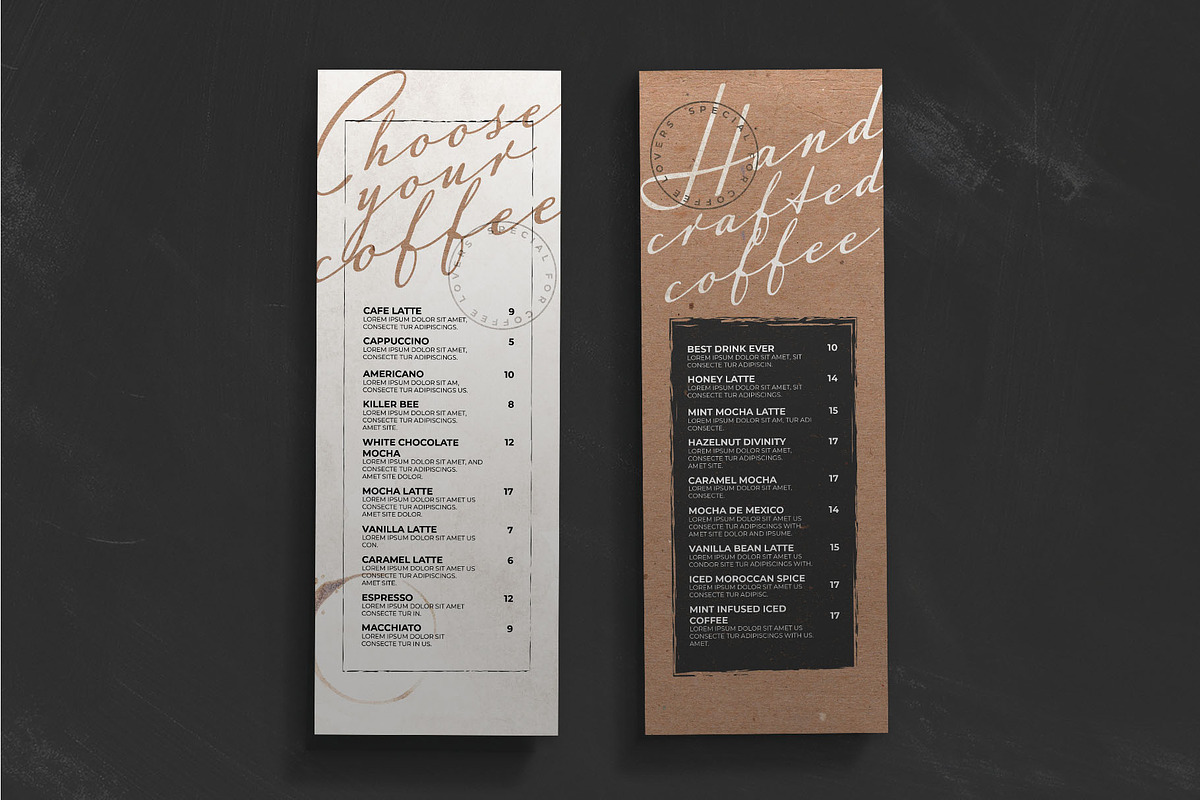 Choose
your
coffee
SPECIAL FOR COFFEE LOVERS
CAFE LATTE 9
LOREM IPSUM DOLOR SIT AMET,
CONSECTE TUR ADIPISCINGS.
CAPPUCCINO 5
LOREM IPSUM DOLOR SIT AMET,
CONSECTE TUR ADIPISCINGS.
AMERICANO 10
LOREM IPSUM DOLOR SIT AM,
CONSECTE TUR ADIPISCINGS US.
KILLER BEE 8
LOREM IPSUM DOLOR SIT AMET,
CONSECTE TUR ADIPISCINGS.
AMET SITE.
WHITE CHOCOLATE 12
MOCHA
LOREM IPSUM DOLOR SIT AMET, AND
CONSECTE TUR ADIPISCINGS.
AMET SITE DOLOR.
MOCHA LATTE 17
LOREM IPSUM DOLOR SIT AMET US
CONSECTE TUR ADIPISCINGS.
AMET SITE DOLOR.
VANILLA LATTE 7
LOREM IPSUM DOLOR SIT AMET US
CON.
CARAMEL LATTE 6
LOREM IPSUM DOLOR SIT AMET US
CONSECTE TUR ADIPISCINGS.
AMET SITE.
ESPRESSO 12
LOREM IPSUM DOLOR SIT AMET
CONSECTE TUR IN.
MACCHIATO 9
LOREM IPSUM DOLOR SIT
CONSECTE TUR IN US.
Hand
crafted
coffee
SPECIAL FOR COFFEE LOVERS
BEST DRINK EVER 10
LOREM IPSUM DOLOR SIT AMET, SIT
CONSECTE TUR ADIPISCIN.
HONEY LATTE 14
LOREM IPSUM DOLOR SIT AMET, SIT
CONSECTE TUR ADIPISCINGS.
MINT MOCHA LATTE 15
LOREM IPSUM DOLOR SIT AM, TUR ADI
CONSECTE.
HAZELNUT DIVINITY 17
LOREM IPSUM DOLOR SIT AMET,
CONSECTE TUR ADIPISCINGS.
AMET SITE.
CARAMEL MOCHA 17
LOREM IPSUM DOLOR SIT AMET,
CONSECTE.
MOCHA DE MEXICO 14
LOREM IPSUM DOLOR SIT AMET US
CONSECTE TUR ADIPISCINGS WITH.
AMET SITE DOLOR AND IPSUME.
VANILLA BEAN LATTE 15
LOREM IPSUM DOLOR SIT AMET US
CONDOR SITE TUR ADIPISCINGS WITH.
ICED MOROCCAN SPICE 17
LOREM IPSUM DOLOR SIT AMET US
CONSECTE TUR ADIPISC.
MINT INFUSED ICED 17
COFFEE
LOREM IPSUM DOLOR SIT AMET US
CONSECTE TUR ADIPISCINGS WITH US.
AMET.